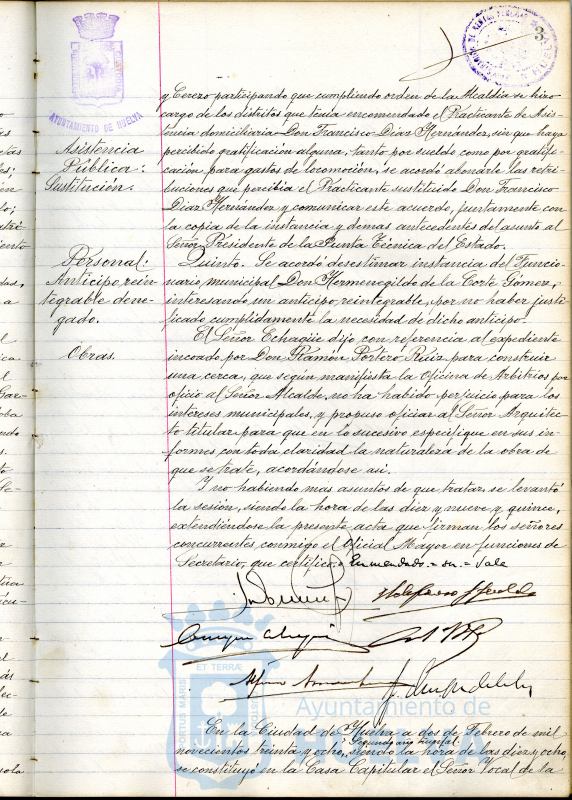 3
AYUNTAMIENTO DE HUELVA
y Cerezo participando que cumpliendo orden de la Alcaldía se hizo
cargo de los distritos que tenía encomendado el Practicante de Asis-
tencia domiciliaria Don Francisco Díaz Hernández, sin que haya
percibido gratificación alguna, tanto por sueldo como por gratifi-
cación para gastos de locomoción, se acordó abonarle las retri-
buciones que percibía el Practicante sustituido Don Francisco
Díaz Hernández y comunicar este acuerdo, juntamente con
la copia de la instancia y demas antecedentes del asunto al
Señor Presidente de la Junta Técnica del Estado.
Asistencia
Pública:
Sustitución.
Quinto. Se acordó desestimar instancia del Funcio-
nario municipal Don Hermenegildo de la Corte Gómez,
interesando un anticipo reintegrable, por no haber justi-
ficado cumplidamente la necesidad de dicho anticipo.
Personal:
Anticipo rein-
tegrable dene-
gado.
El Señor Echagüe dijo con referencia al expediente
incoado por Don Ramón Portero Ruiz para construir
una cerca, que según manifiesta la Oficina de Arbitrios por
oficio al Señor Alcalde, no ha habido perjuicio para los
intereses municipales, y propuso oficiar al Señor Arquitec-
to titular para que en lo sucesivo especifique en sus in-
formes con toda claridad la naturaleza de la obra de
que se trate, acordándose así.
Obras.
Y no habiendo mas asuntos de que tratar, se levantó
la sesión, siendo la hora de las diez y nueve y quince,
extendiéndose la presente acta que firman los señores
concurrentes, conmigo el Oficial Mayor en funciones de
Secretario, que certifico. Enmendado = un = Vale
ET TERRÆ
PORTUS MARIS
Ayuntamiento de
En la Ciudad de Huelva a dos de Febrero de mil
novecientos treinta y ocho, Segundo año triunfal, siendo la hora de las diez y ocho,
se constituyó en la Casa Capitular el Señor Vocal de la